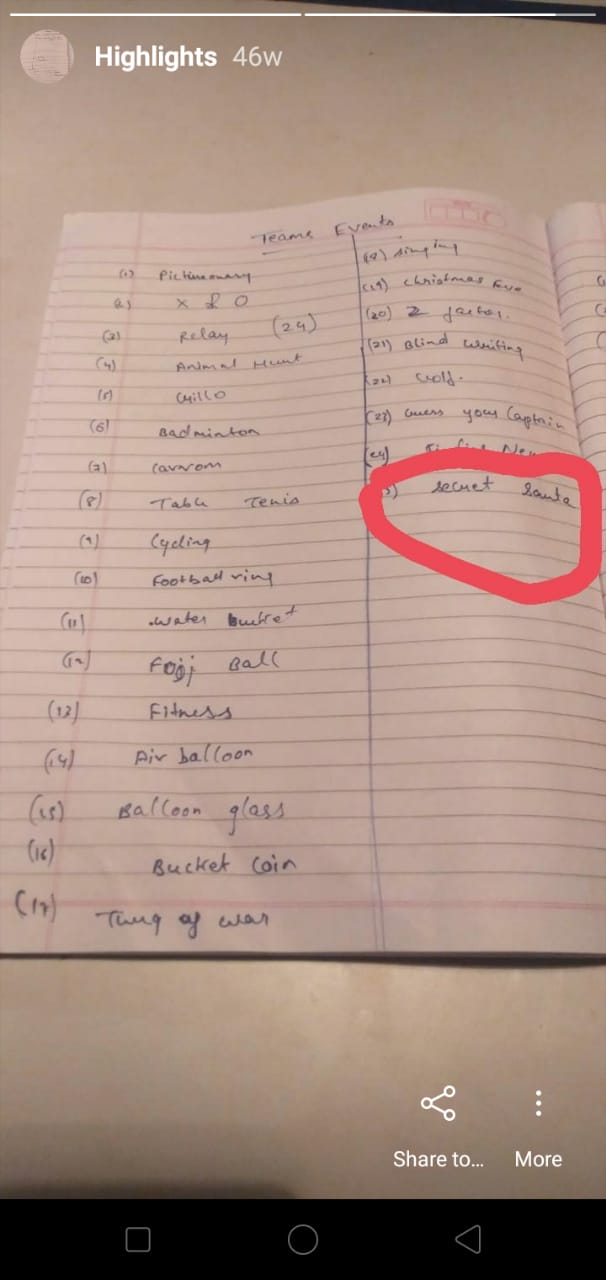 Highlights 46w
Teams Events
(1) Pictureonary
(2) X & O
(3) Relay (24)
(4) Animal Hunt
(5)
(6) Badminton
(7) Carrom
(8) Table Tenis
(9) Cycling
(10) Football ring
(11) Water bucket
(12) Ball
(13) Fitness
(14) Air balloon
(15) Balloon glass
(16) Bucket Coin
(17) Tung of war
(18) Singing
(19) Christmas Eve
(20) factor.
(21) Blind writing
(22)
(23) Guess your Captain
(24)
Secret Santa
Share to...
More